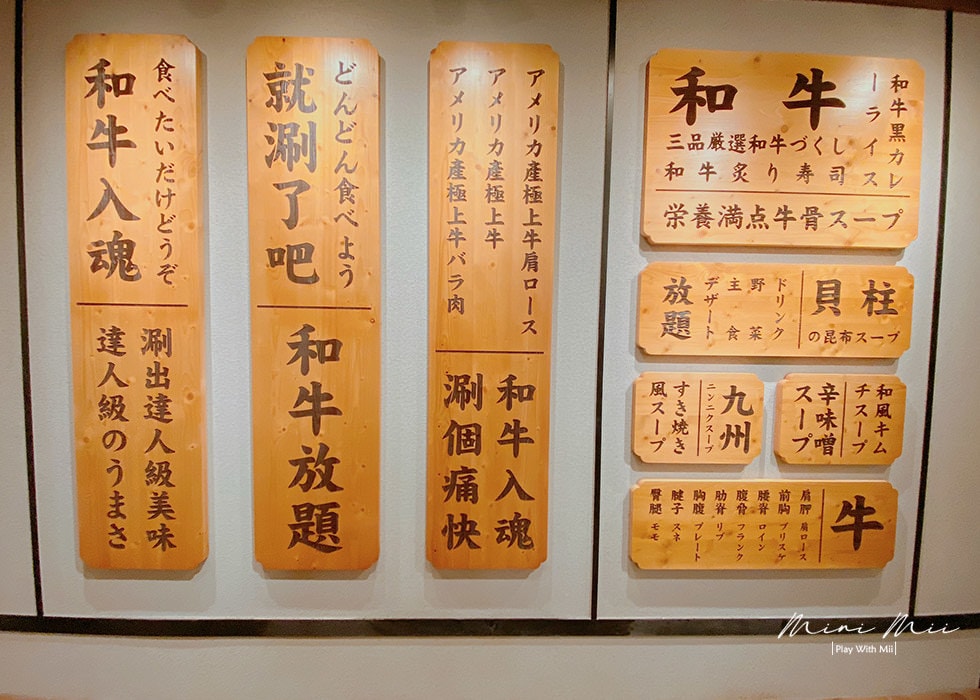 食べたいだけどうぞ
和牛入魂
涮出達人級美味
達人級のうまさ
どんどん食べよう
就涮了吧
和牛放題
アメリカ産極上牛肩ロース
アメリカ産極上牛
アメリカ産極上牛バラ肉
和牛入魂
涮個痛快
和牛黒カレ
ーライス
和牛
三品厳選和牛づくし
和牛炙り寿司
栄養満点牛骨スープ
貝柱
の昆布スープ
ドリンク
野菜
主食
デザート
放題
九州
ニンニクスープ
すき焼き
風スープ
和風キム
チスープ
辛味噌
スープ
牛
肩胛 肩ロース
前胸 ブリスケ
腰脊 ロイン
腹脅 フランク
肋脊 リブ
胸腹 プレート
腱子 スネ
臀腿 モモ
Mini Mii
Play With Mii